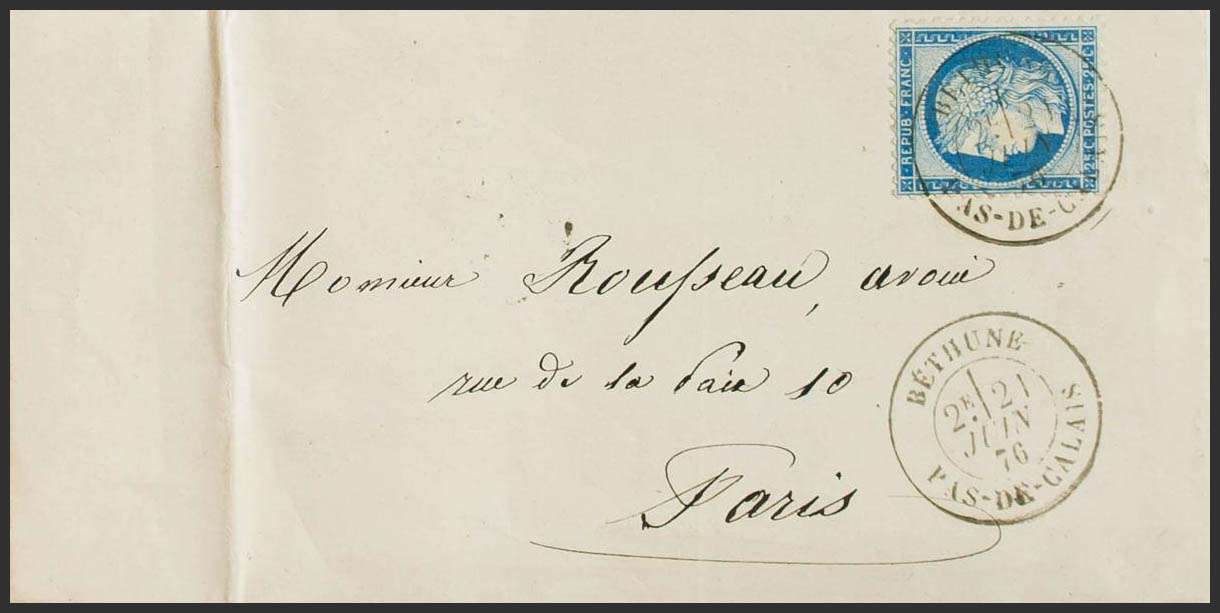 REPUB · FRANC ·
25 C POSTES 25 C
PAS-DE-CALAIS
Monsieur Rousseau, avoué
rue de la Paix 10
Paris
BÉTHUNE
2E 21
JUIN
76
PAS-DE-CALAIS